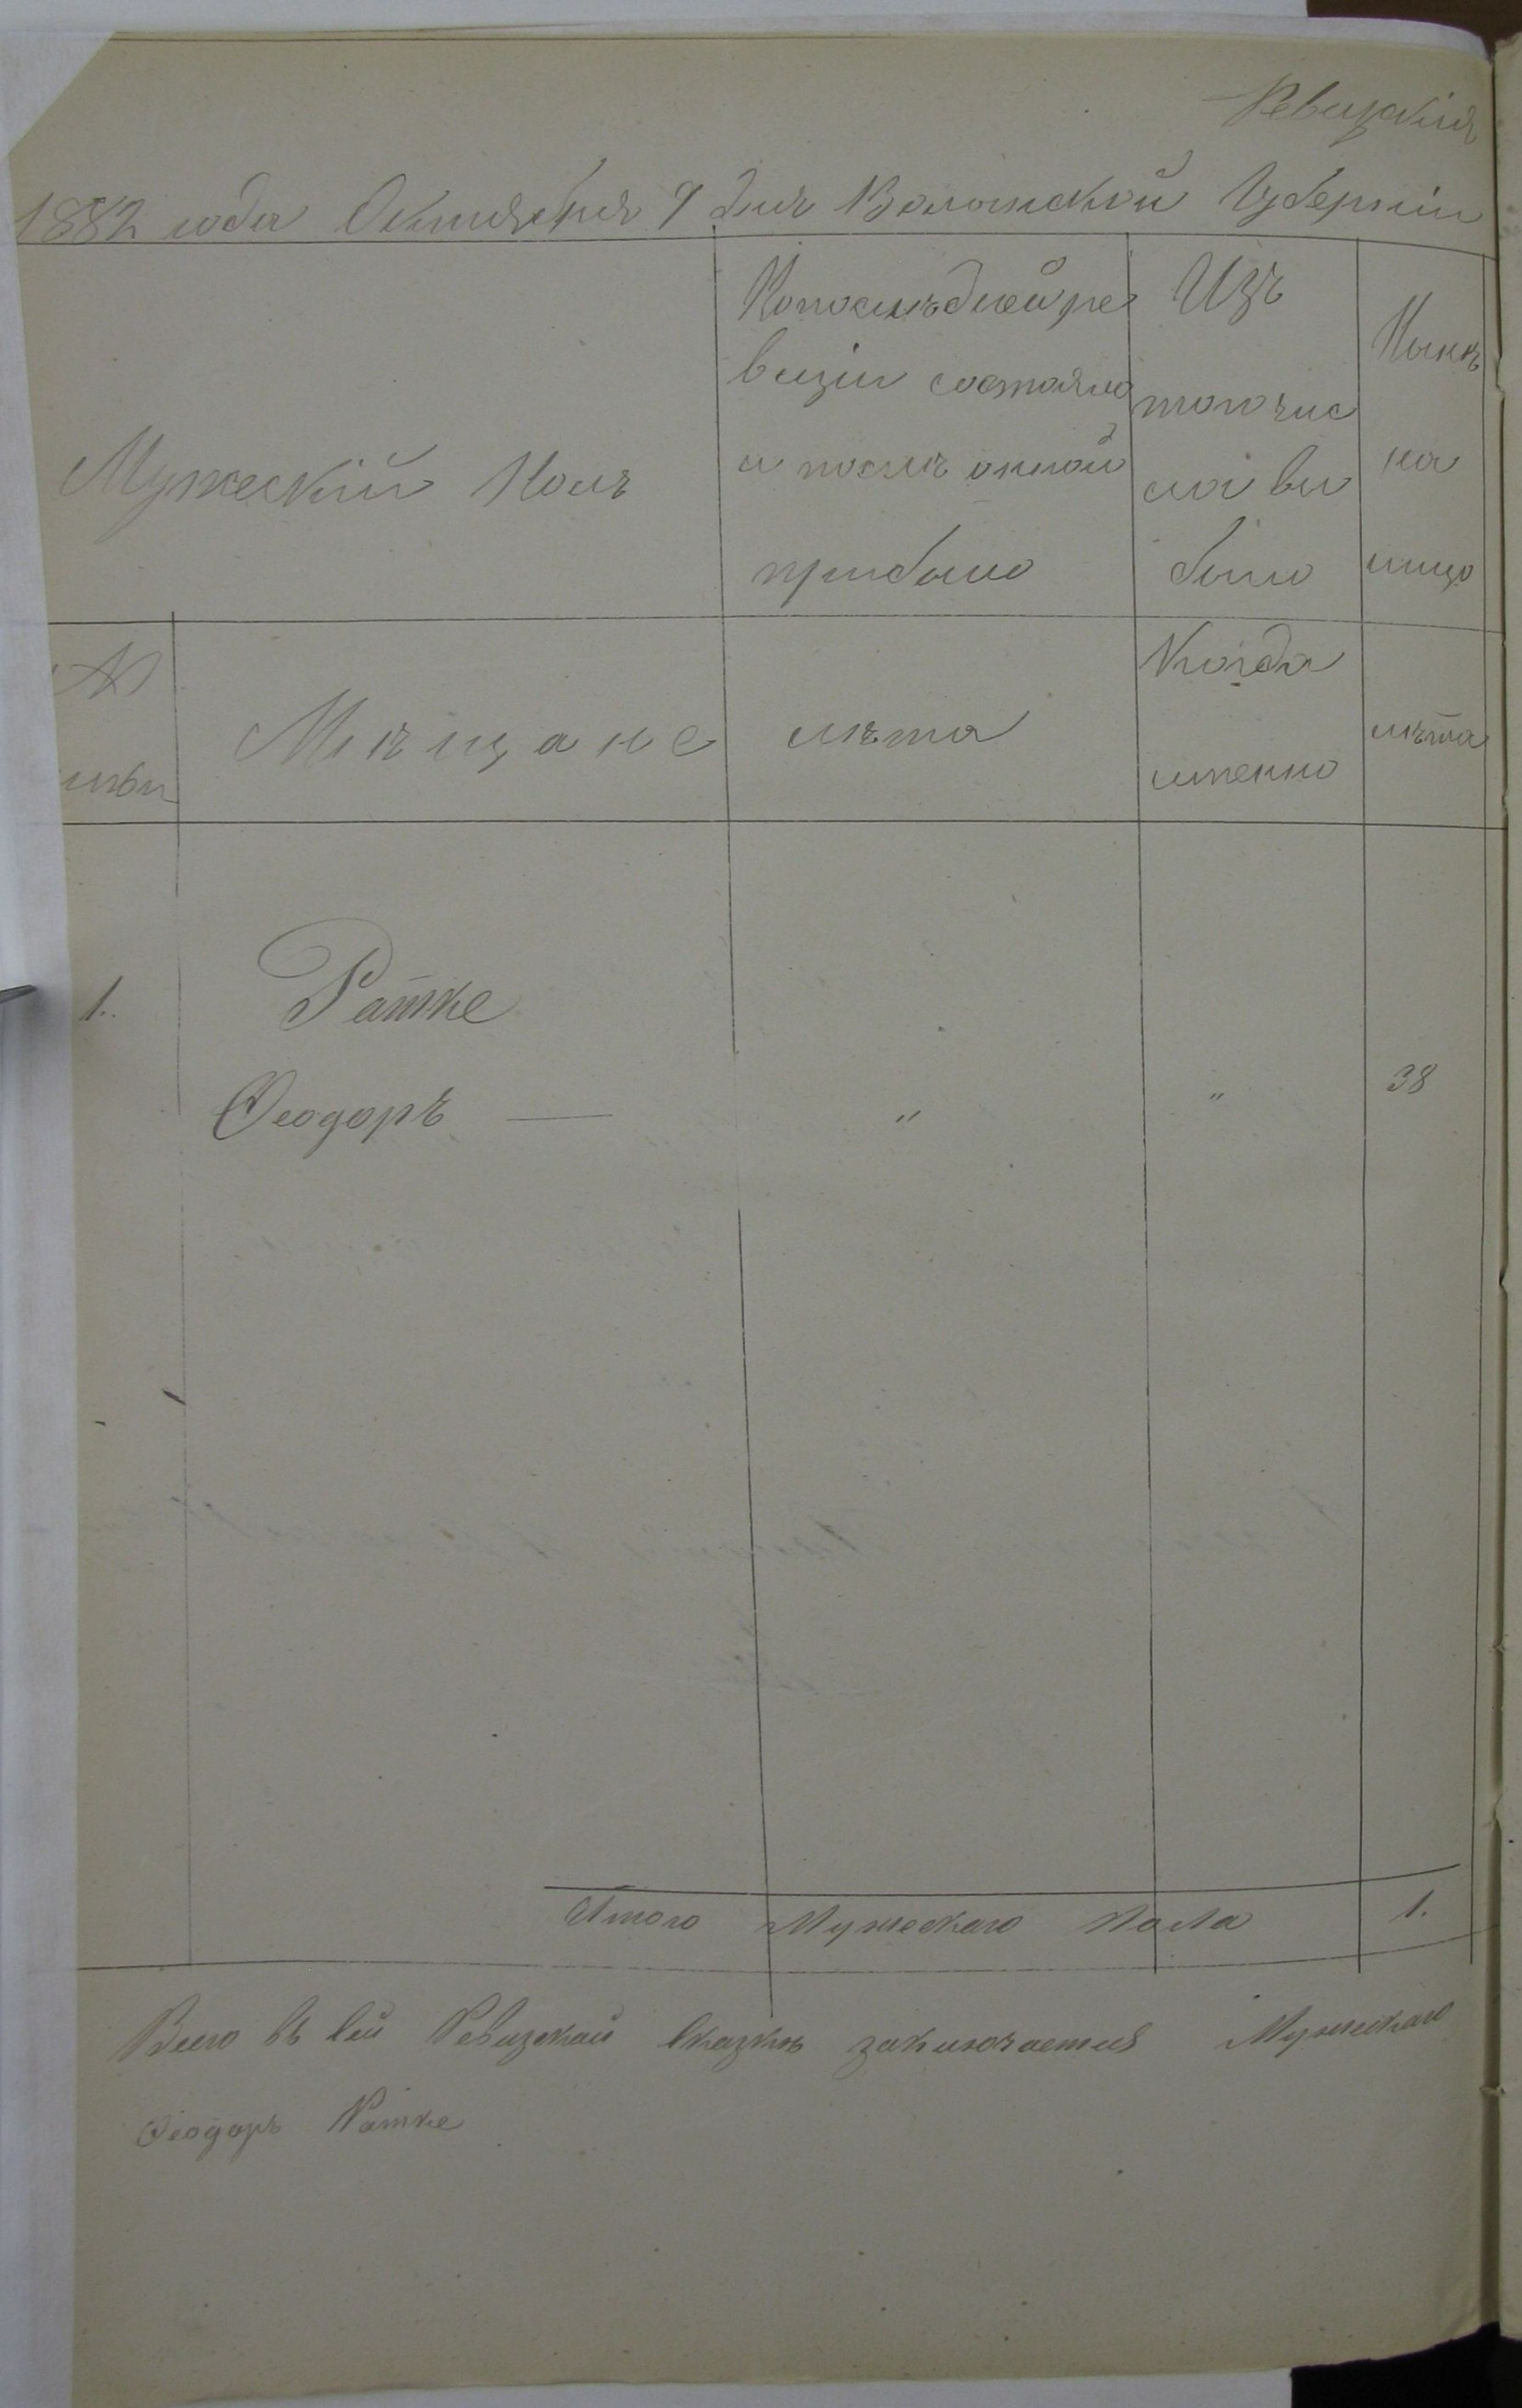 Ревизкія
1882 года Октября 9 дня Волынской Губерніи
Мужескій Полъ
Попослѣдней ре
візіи состояло
и послѣ оной
прибыло
Изъ
того чис
ла вы
было
Нынѣ
на
лицо
№
Мѣщане
лѣта
Когда
именно
лѣта
1. Ратке
Феодоръ — " " 38
Итого Мужескаго Пола 1.
Всего въ сей Ревизской сказкѣ заключается Мужескаго
Феодоръ Ратке